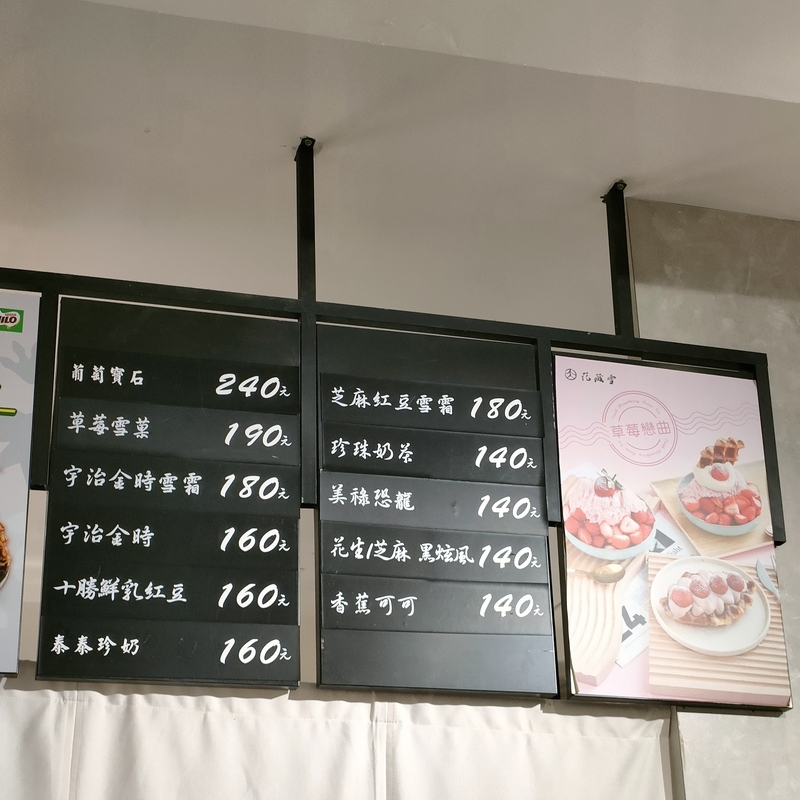 MILO
葡萄寶石 240元
草莓雪菓 190元
宇治金時雪霜 180元
宇治金時 160元
十勝鮮乳紅豆 160元
泰泰珍奶 160元
芝麻紅豆雪霜 180元
珍珠奶茶 140元
美祿恐龍 140元
花生/芝麻 黑炫風 140元
香蕉可可 140元
花藏雪
草莓戀曲